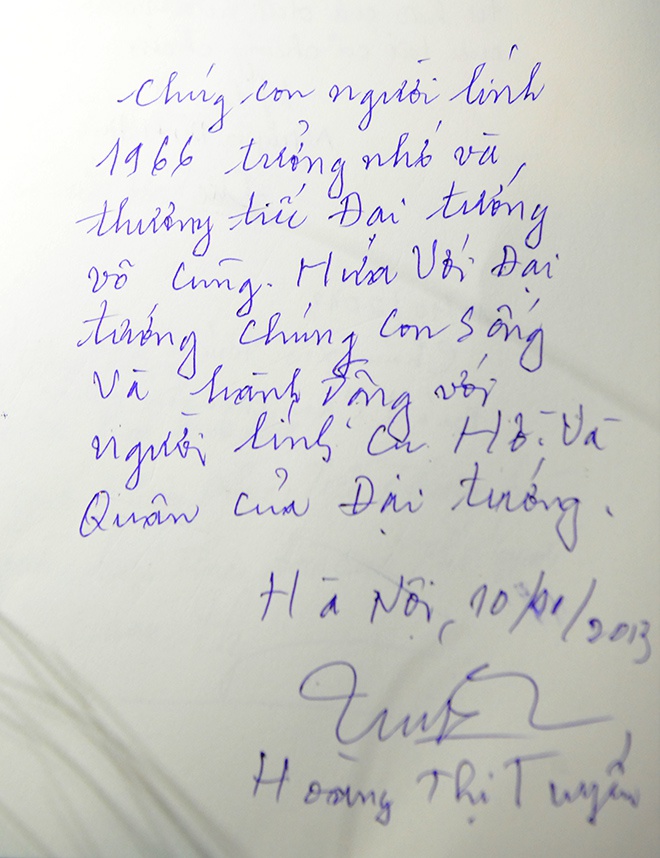 Chúg con người lính
1966 tưởng nhớ và
thương tiếc Đại tướng
vô cùng. Hứa Với Đại
tướng chúng con sống
Và hành động với
người lính cụ Hồ. Và
Quân của Đại tướng.
Hà Nội, 10/ /2013
Hoàng Thị Tuyển